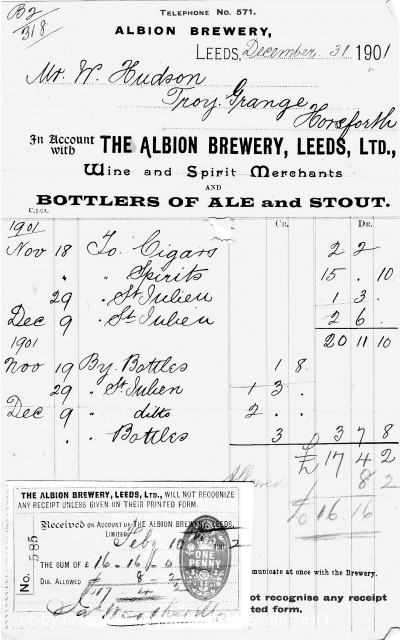 B2/
318
TELEPHONE No. 571.
ALBION BREWERY,
LEEDS, December 31 1901
Mr. W. Hudson
Troy Grange
Horsforth
In Account with THE ALBION BREWERY, LEEDS, LTD.,
Wine and Spirit Merchants
AND
BOTTLERS OF ALE and STOUT.
C.2.01.
CR. DR.
1901
Nov 18 To Cigars 2 2
" " Spirits 15 . 10
29 " St Julien 1 3 .
Dec 9 " St Julien 2 6 .
20 11 10
1901
Nov 19 By Bottles 1 8
29 " St Julien 1 3 .
Dec 9 " ditto 2 . .
" . Bottles 3 3 7 8
£ 17 4 2
Allowed 8 2
£ 16 . 16
THE ALBION BREWERY, LEEDS, LTD., WILL NOT RECOGNIZE
ANY RECEIPT UNLESS GIVEN ON THEIR PRINTED FORM.
Received on Account of THE ALBION BREWERY, LEEDS,
LIMITED
Feby 10 1902
No. 585
THE SUM OF £ 16 . 16 / 0
DIS. ALLOWED 8 - 2
£ 17 4 2
ONE PENNY
mmunicate at once with the Brewery.
not recognise any receipt
ted form.